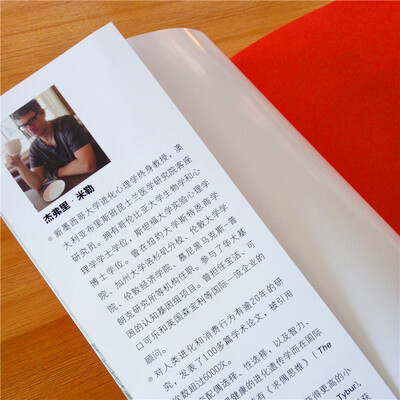 杰弗里·米勒
新墨西哥大学进化心理学终身教授，澳
大利亚布里斯班昆士兰医学研究院客座
研究员。拥有哥伦比亚大学生物学和心
理学学士学位，斯坦福大学实验心理学
博士学位。曾在纽约大学斯特恩商学
院、加州大学洛杉矶分校、伦敦大学学
院、伦敦经济学院、慕尼黑马克斯-普
朗克研究所等机构任职。参与了华大基
因的认知基因组项目。曾担任宝洁、可
口可乐和英国森宝利等国际一流企业的
顾问。
对人类进化和消费行为有逾20年的研
究，发表了100多篇学术论文，被引用
次数超过6000次。
配偶选择、性选择，以及智力、
健康的进化遗传学而在国际
有《求偶思维》（The
获得更高的小
Tybur),